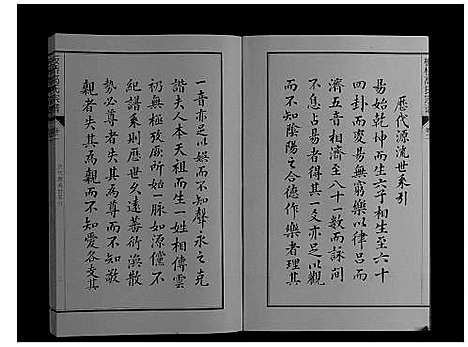 歷代源流世系引
易始乾坤而生六子相生至六十
四封而變易無窮樂以律呂而
濟五音相濟至八十一數而詠間
不息占易者得其一爻亦足以觀
不知陰陽之合德作樂者理其
一音亦足以娛而不知聲永之克
諧夫人本天祖而生一姓相傳雲
礽無極攷厥所始一脉如源儻不
紀譜系則歷世久遠蕃衍渙散
勢必尊者失其為尊而不知敬
親者失其為親而不知愛各支其